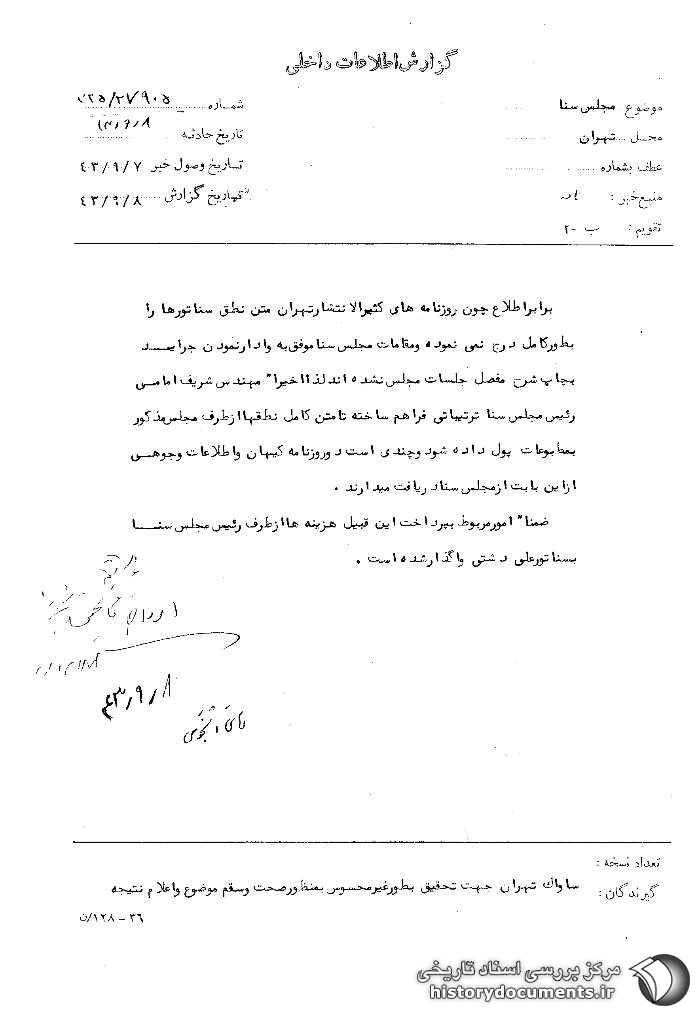 گزارش اطلاعات داخلی
موضوع مجلس سنا
محل تهران
عطف بشماره
منبع خبر :
تقویم : ب -۲
شماره ۲۷۹۰۵/
تاریخ حادثه
تاریخ وصول خبر ۴۳/۹/۷
تاریخ گزارش ۴۳/۹/۸
برابر اطلاع چون روزنامه های کثیرالانتشار تهران متن نطق سناتورها را
بطور کامل درج نمی نموده و مقامات مجلس سنا موفق به وادار نمودن جرایــد
بچاپ شرح مفصل جلسات مجلس نشده اند لذا اخیرا" مهندس شریف امامــی
رئیس مجلس سنا ترتیباتی فراهم ساخته تا متن کامل نطقها از طرف مجلس مذکور
بمطبوعات پول داده شود و چندی است دو روزنامه کیهان و اطلاعات وجوهــی
از این بابت از مجلس سنا دریافت میدارند .
ضمنا" امور مربوط بپرداخت این قبیل هزینه ها از طرف رئیس مجلس سنــا
بسناتور علی دشتی واگذار شده است .
۴۳/۹/۸
تعداد نسخه :
گیرندگان : ساواک تهران جهت تحقیق بطور غیر محسوس بمنظور صحت و سقم موضوع و اعلام نتیجه
۳۶ - ۱۲۸/ن
مرکز بررسی اسناد تاریخی
historydocuments.ir